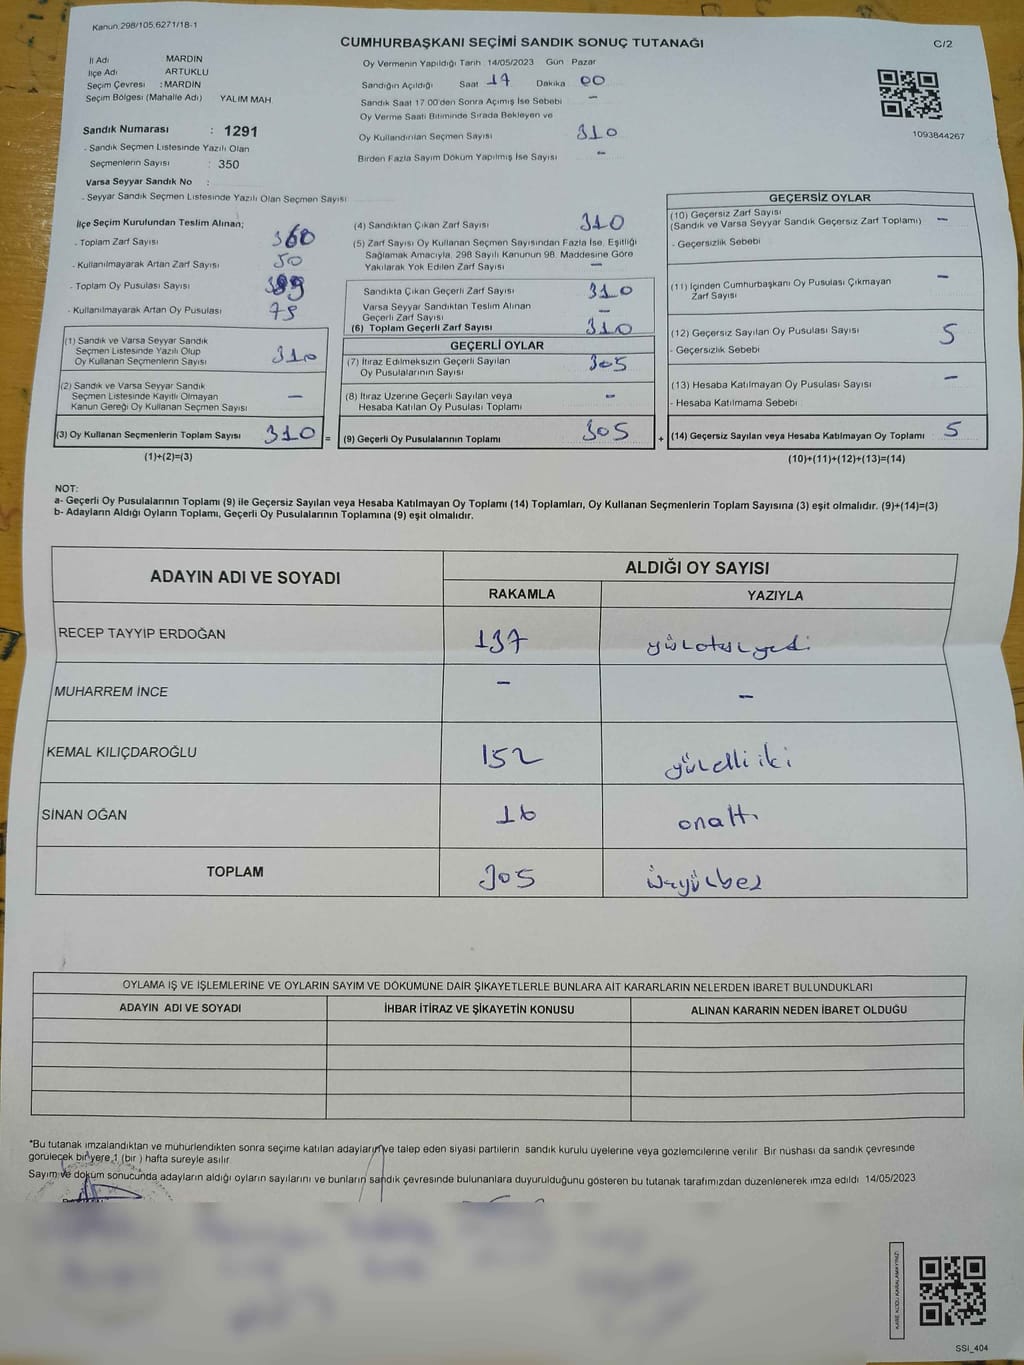 Kanun 298/105,6271/18-1
CUMHURBAŞKANI SEÇİMİ SANDIK SONUÇ TUTANAĞI
C/2
İl Adı MARDİN
İlçe Adı ARTUKLU
Seçim Çevresi : MARDİN
Seçim Bölgesi (Mahalle Adı) YALIM MAH
Sandık Numarası : 1291
- Sandık Seçmen Listesinde Yazılı Olan
Seçmenlerin Sayısı : 350
Varsa Seyyar Sandık No :
- Seyyar Sandık Seçmen Listesinde Yazılı Olan Seçmen Sayısı
Oy Vermenin Yapıldığı Tarih 14/05/2023 Gün Pazar
Sandığın Açıldığı Saat 17 Dakika 00
Sandık Saat 17 00'den Sonra Açımış İse Sebebi -
Oy Verme Saati Bitiminde Sırada Bekleyen ve
Oy Kullandırılan Seçmen Sayısı 310
Birden Fazla Sayım Döküm Yapılmış İse Sayısı -
1093844267
İlçe Seçim Kurulundan Teslim Alınan;
- Toplam Zarf Sayısı 360
- Kullanılmayarak Artan Zarf Sayısı 50
- Toplam Oy Pusulası Sayısı
- Kullanılmayarak Artan Oy Pusulası 79
(1) Sandık ve Varsa Seyyar Sandık
Seçmen Listesinde Yazılı Olup
Oy Kullanan Seçmenlerin Sayısı 310
(2) Sandık ve Varsa Seyyar Sandık
Seçmen Listesinde Kayıtlı Olmayan
Kanun Gereği Oy Kullanan Seçmen Sayısı -
(3) Oy Kullanan Seçmenlerin Toplam Sayısı 310 =
(1)+(2)=(3)
(4) Sandıktan Çıkan Zarf Sayısı 310
(5) Zarf Sayısı Oy Kullanan Seçmen Sayısından Fazla İse, Eşitliği
Sağlamak Amacıyla, 298 Sayılı Kanunun 98. Maddesine Göre
Yakılarak Yok Edilen Zarf Sayısı -
Sandıkta Çıkan Geçerli Zarf Sayısı 310
Varsa Seyyar Sandıktan Teslim Alınan
Geçerli Zarf Sayısı -
(6) Toplam Geçerli Zarf Sayısı 310
GEÇERLİ OYLAR
(7) İtiraz Edilmeksizin Geçerli Sayılan
Oy Pusulalarının Sayısı 305
(8) İtiraz Üzerine Geçerli Sayılan veya
Hesaba Katılan Oy Pusulası Toplamı -
(9) Geçerli Oy Pusulalarının Toplamı 305 +
GEÇERSİZ OYLAR
(10) Geçersiz Zarf Sayısı -
(Sandık ve Varsa Seyyar Sandık Geçersiz Zarf Toplamı)
- Geçersizlik Sebebi
(11) İçinden Cumhurbaşkanı Oy Pusulası Çıkmayan
Zarf Sayısı -
(12) Geçersiz Sayılan Oy Pusulası Sayısı 5
- Geçersizlik Sebebi
(13) Hesaba Katılmayan Oy Pusulası Sayısı -
- Hesaba Katılmama Sebebi
(14) Geçersiz Sayılan veya Hesaba Katılmayan Oy Toplamı 5
(10)+(11)+(12)+(13)=(14)
NOT:
a- Geçerli Oy Pusulalarının Toplamı (9) ile Geçersiz Sayılan veya Hesaba Katılmayan Oy Toplamı (14) Toplamları, Oy Kullanan Seçmenlerin Toplam Sayısına (3) eşit olmalıdır. (9)+(14)=(3)
b- Adayların Aldığı Oyların Toplamı, Geçerli Oy Pusulalarının Toplamına (9) eşit olmalıdır.
ADAYIN ADI VE SOYADI ALDIĞI OY SAYISI
RAKAMLA YAZIYLA
RECEP TAYYİP ERDOĞAN 137 yüzotuzyedi
MUHARREM İNCE - -
KEMAL KILIÇDAROĞLU 152 yüzelliiki
SİNAN OĞAN 16 onaltı
TOPLAM 305 üçyüzbeş
OYLAMA İŞ VE İŞLEMLERİNE VE OYLARIN SAYIM VE DÖKÜMÜNE DAİR ŞİKAYETLERLE BUNLARA AİT KARARLARIN NELERDEN İBARET BULUNDUKLARI
ADAYIN ADI VE SOYADI İHBAR İTİRAZ VE ŞİKAYETİN KONUSU ALINAN KARARIN NEDEN İBARET OLDUĞU
*Bu tutanak imzalandıktan ve mühürlendikten sonra seçime katılan adayların ve talep eden siyasi partilerin sandık kurulu üyelerine veya gözlemcilerine verilir Bir nüshası da sandık çevresinde
görülecek bir yere 1 (bir ) hafta süreyle asılır.
Sayım ve döküm sonucunda adayların aldığı oyların sayılarını ve bunların sandık çevresinde bulunanlara duyurulduğunu gösteren bu tutanak tarafımızdan düzenlenerek imza edildi 14/05/2023
SSI_404